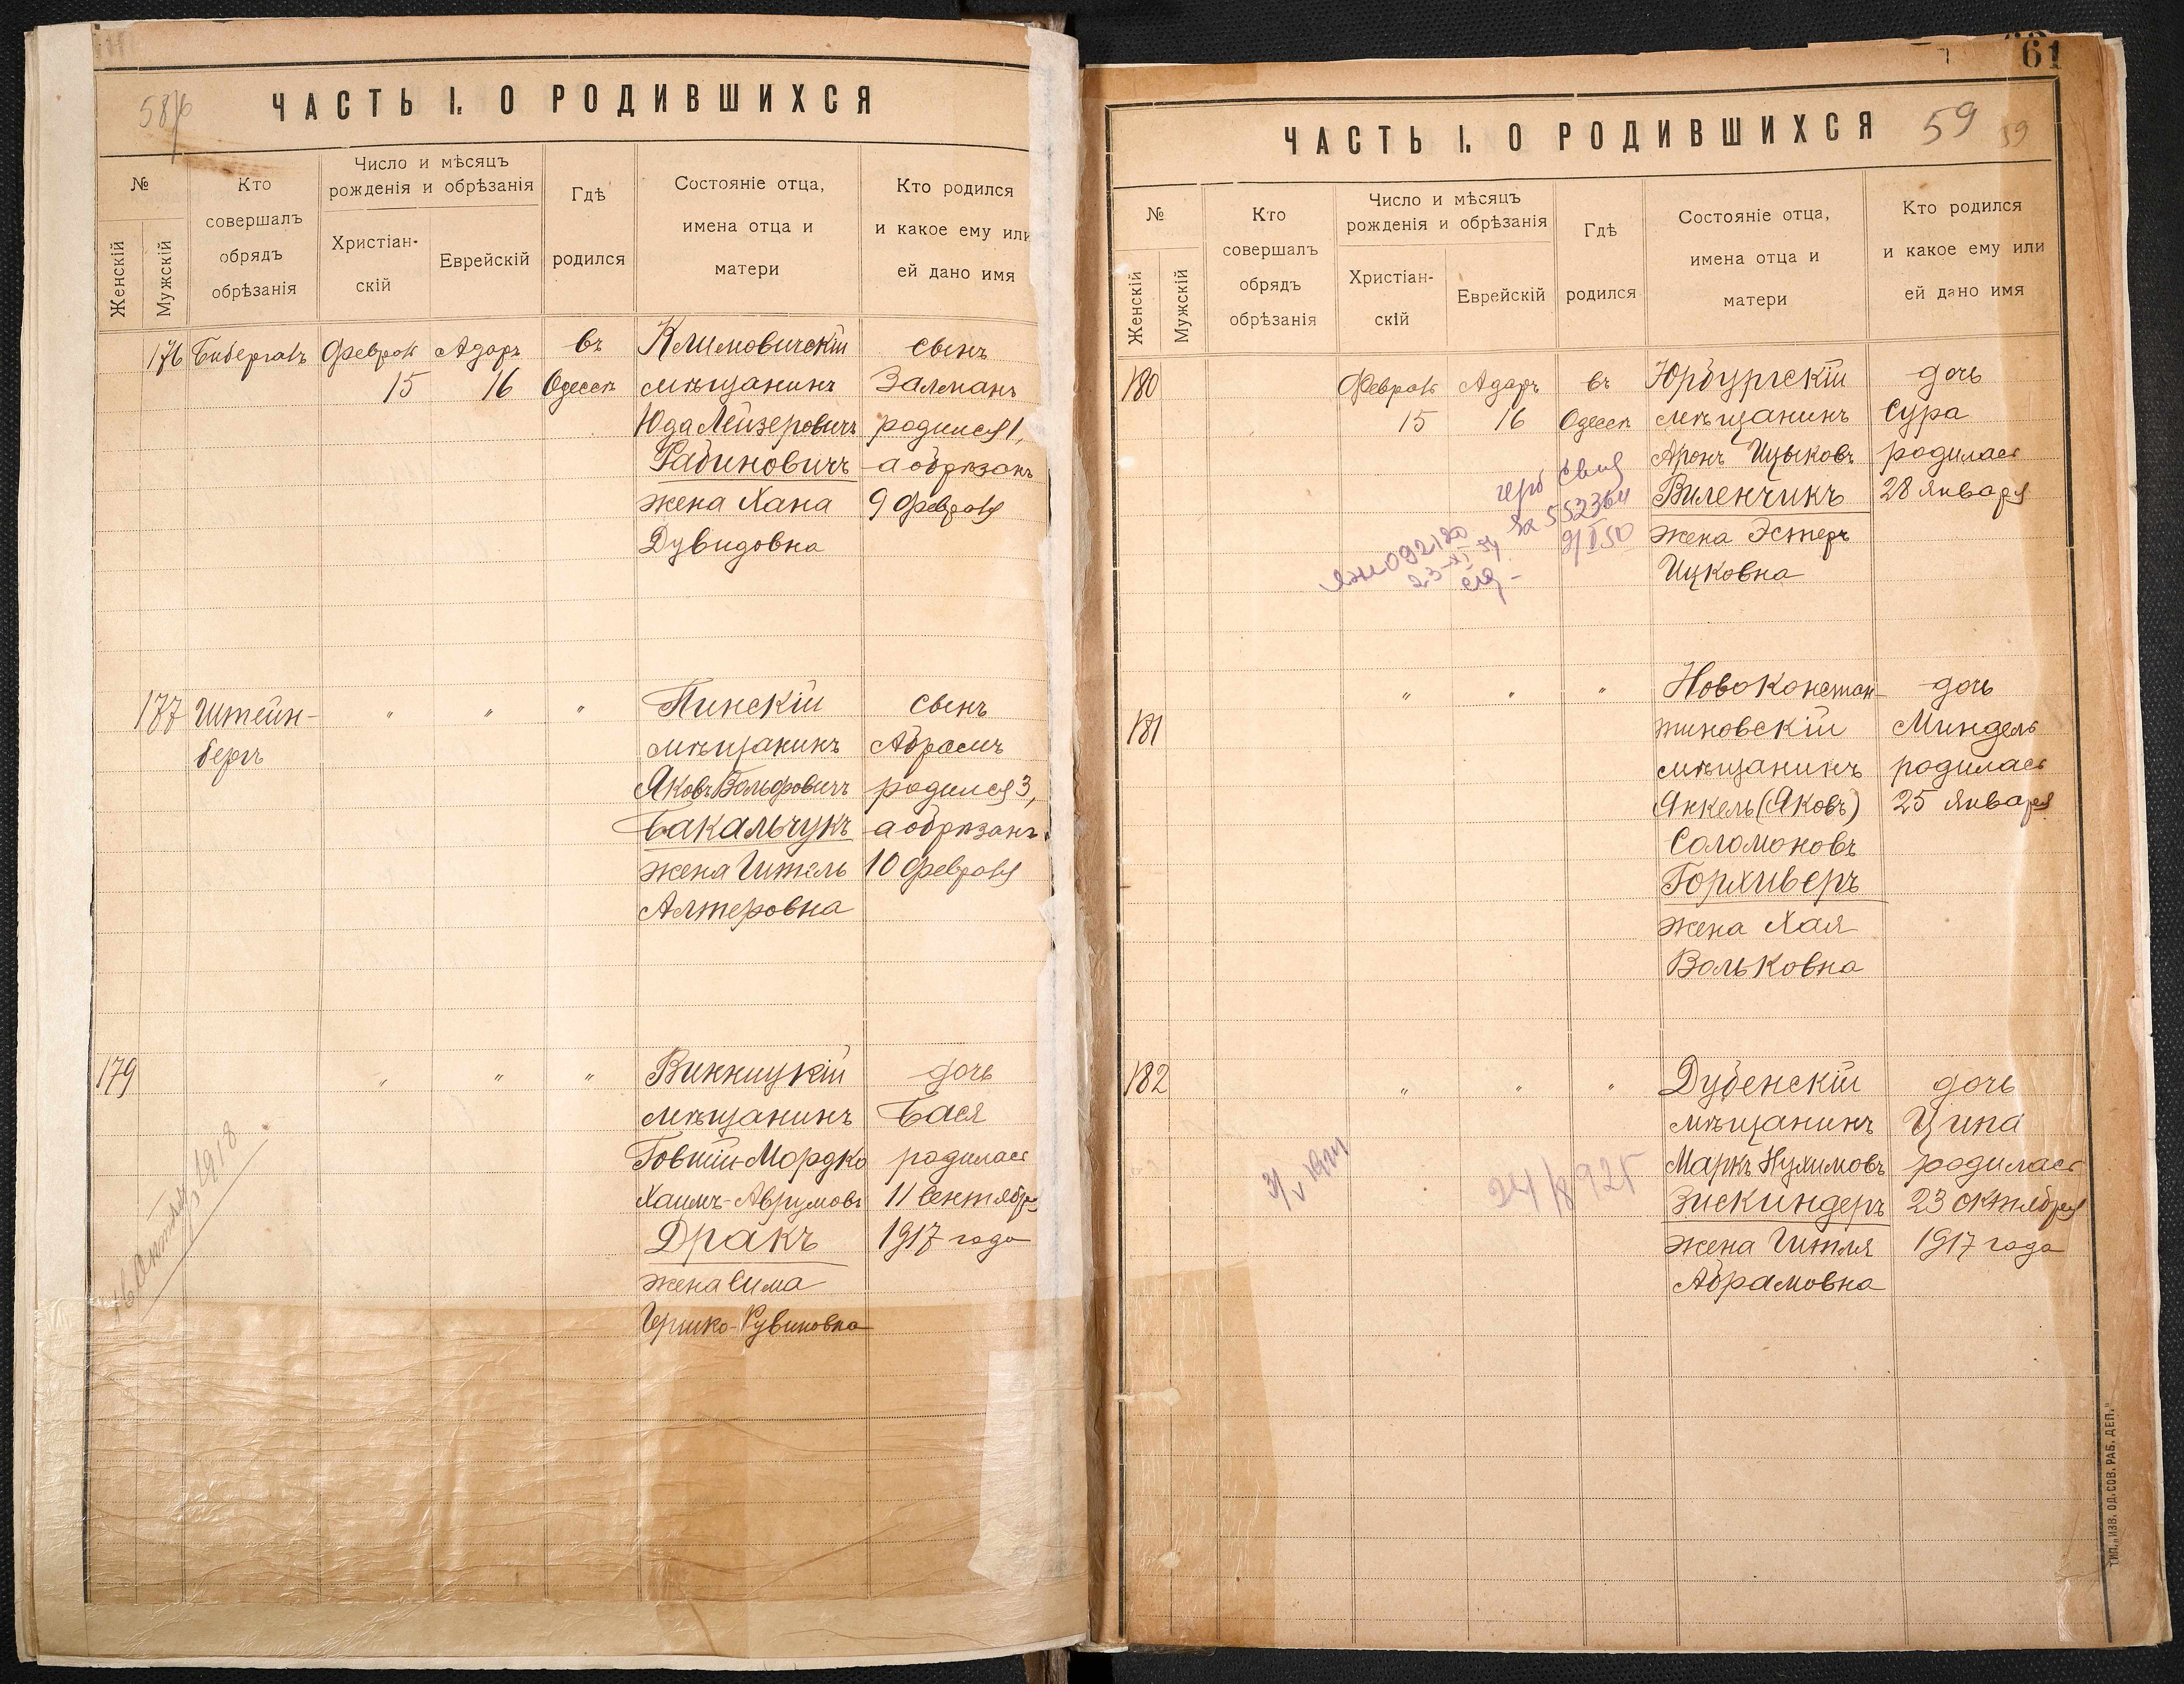 ЧАСТЬ I. О РОДИВШИХСЯ
№
Женскій
Мужскій
Кто
совершалъ
обрядъ
обрѣзанія
Число и мѣсяцъ
рожденія и обрѣзанія
Христіан-
скій
Еврейскій
Гдѣ
родился
Состояніе отца,
имена отца и
матери
Кто родился
и какое ему или
ей дано имя
176
Февраль
15
Адаръ
16
въ
Одессѣ
Климовичскій
мѣщанинъ
Юда Лейзеровичъ
Рабиновичъ
жена Хана
Дувидовна
сынъ
Залманъ
родился 1,
а обрѣзанъ
9 февраля
177
Штейн-
бергъ
"
"
"
Пинскій
мѣщанинъ
Яковъ Вольфовичъ
Бакальчукъ
жена Гитель
Алтеровна
сынъ
Абрамъ
родился 3,
а обрѣзанъ
10 февраля
179
"
"
"
Винницкій
мѣщанинъ
Говшій-Мордко
Хаимъ-Аврумовъ
Дракъ
жена Сима
Гершко-Рувиновна
дочь
Бася
родилась
11 сентября
1917 года
1918
61
ЧАСТЬ I. О РОДИВШИХСЯ
59
59
№
Женскій
Мужскій
Кто
совершалъ
обрядъ
обрѣзанія
Число и мѣсяцъ
рожденія и обрѣзанія
Христіан-
скій
Еврейскій
Гдѣ
родился
Состояніе отца,
имена отца и
матери
Кто родился
и какое ему или
ей дано имя
180
Февраль
15
Адаръ
16
въ
Одессѣ
Юрбургскій
мѣщанинъ
Аронъ Ицыковъ
Виленчикъ
жена Эстеръ
Ицковна
дочь
Сура
родилась
28 января
181
"
"
"
Новоконстан-
тиновскій
мѣщанинъ
Янкель (Яковъ)
Соломоновъ
Горхиверъ
жена Хая
Вольковна
дочь
Миндель
родилась
25 января
182
"
"
"
Дубенскій
мѣщанинъ
Маркъ Нухимовъ
Зискиндеръ
жена Гитля
Абрамовна
дочь
Ципа
родилась
23 октября
1917 года
24/8 925
ТИП. „ИЗВ. ОД. СОВ. РАБ. ДЕП."